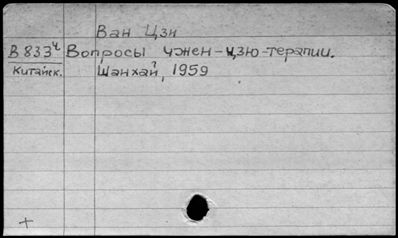 Ван Цзи
В 833ч Вопросы чжен-цзю-терапии.
Китайск. Шанхай, 1959
+